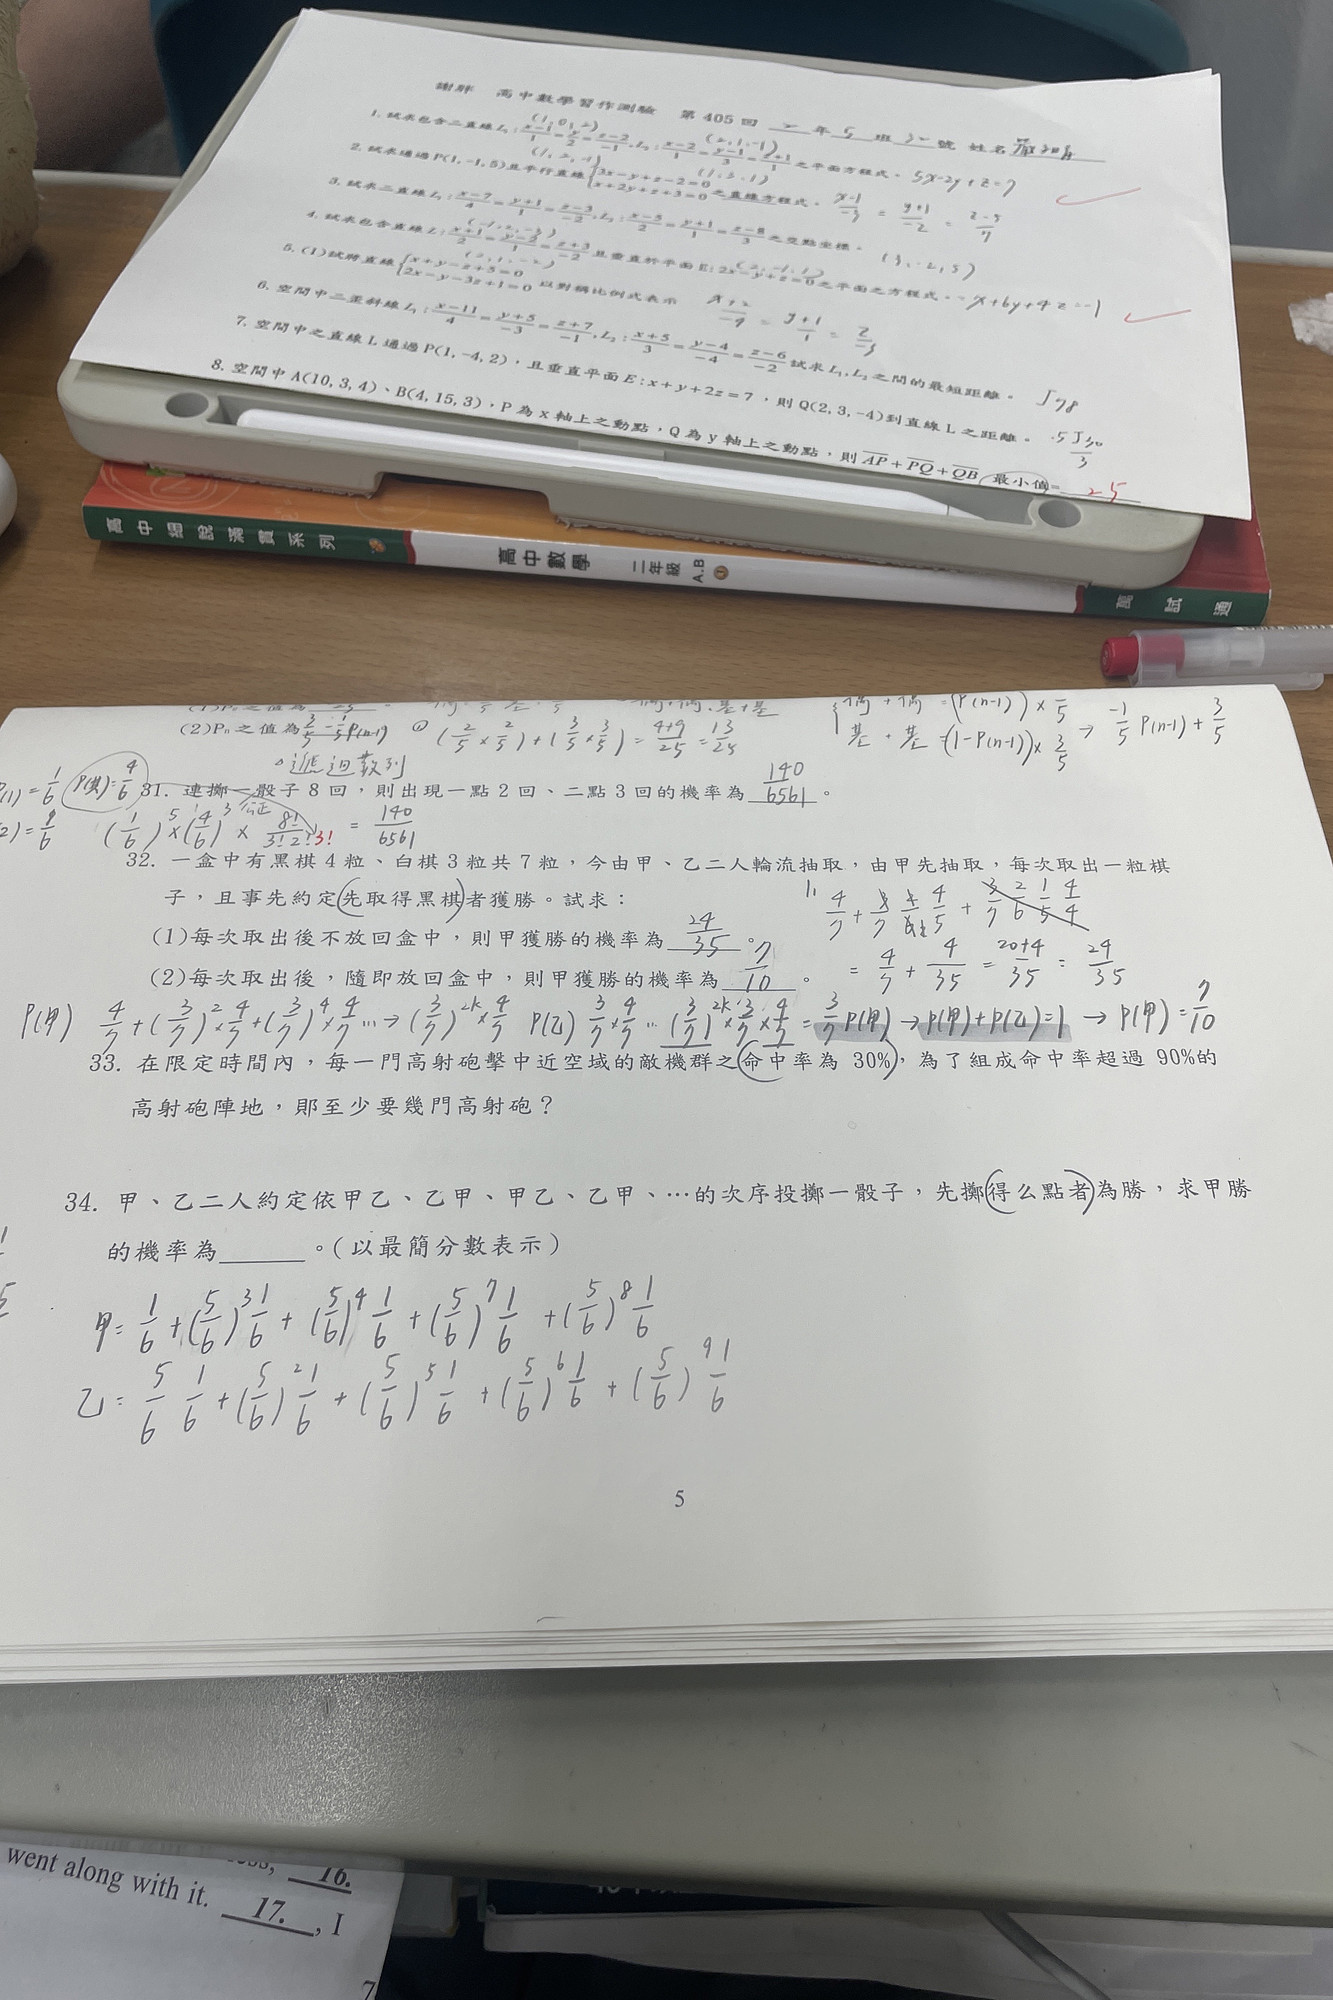 謝胖 高中數學習作測驗 第 405 回 二 年 5 班 號 姓名
1. 試求包含二直線 L₁: (x-1)/1 = y/2 = (z-2)/-1, L₂: (x-2)/1 = (y-1)/3 = (z+1)/1 之平面方程式。 5x-2y+z=7
(1, 0, 2) (2, 1, -1)
(1, 2, -1) (1, 3, 1)
2. 試求通過 P(1, -1, 5) 且平行直線 { 3x-y+z-2=0, x+2y+z+3=0 之直線方程式。 (x-1)/-3 = (y+1)/-2 = (z-5)/7
3. 試求二直線 L₁: (x-7)/4 = (y+1)/1 = (z-3)/-2, L₂: (x-5)/2 = (y+1)/1 = (z-8)/3 之交點坐標。 (3, -2, 5)
4. 試求包含直線 L: (x+1)/2 = (y-2)/1 = (z+3)/-2 且垂直於平面 E: 2x-y+z=0 之平面之方程式。 -x+6y+4z=1
(-1, 2, -3) (2, 1, -2) (2, -1, 1)
5. (1)試將直線 { x+y-z+3=0, 2x-y-3z+1=0 以對稱比例式表示 (x+2)/-4 = (y+1)/1 = z/-3
6. 空間中二歪斜線 L₁: (x-11)/4 = (y+5)/-3 = (z+7)/-1, L₂: (x+5)/3 = (y-4)/-4 = (z-6)/-2 試求 L₁, L₂ 之間的最短距離。 √78
7. 空間中之直線 L 通過 P(1, -4, 2), 且垂直平面 E: x+y+2z=7, 則 Q(2, 3, -4) 到直線 L 之距離。 5√30/3
8. 空間中 A(10, 3, 4)、B(4, 15, 3), P 為 x 軸上之動點, Q 為 y 軸上之動點, 則 AP+PQ+QB 最小值= 25
高中超說滿貫系列 高中數學 二年級 A.B 萬試通
(2)Pₙ 之值為 3/5 - 1/5 P(n-1) ① (2/5 × 2/5) + (3/5 × 3/5) = (4+9)/25 = 13/25
偶 + 偶 = (P(n-1)) × 2/5
基 + 基 = (1-P(n-1)) × 3/5 → -1/5 P(n-1) + 3/5
遞迴數列
P(1) = 1/6 P(其)= 4/6 31. 連擲一骰子 8 回,則出現一點 2 回、二點 3 回的機率為 140/6561 。
(1/6)⁵ × (4/6)³ × 8!/3!2!3! = 140/6561
32. 一盒中有黑棋 4 粒、白棋 3 粒共 7 粒,今由甲、乙二人輪流抽取,由甲先抽取,每次取出一粒棋
子,且事先約定先取得黑棋者獲勝。試求:
(1)每次取出後不放回盒中,則甲獲勝的機率為 24/35 。
= 4/7 + 4/35 = (20+4)/35 = 24/35
(2)每次取出後,隨即放回盒中,則甲獲勝的機率為 7/10 。
P(甲) 4/7 + (3/7)² × 4/7 + (3/7)⁴ × 4/7 … → (3/7)²ᵏ × 4/7 P(乙) 3/7 × 4/7 … (3/7)²ᵏ × 3/7 × 4/7 = 3/7 P(甲) → P(甲)+P(乙)=1 → P(甲) = 7/10
33. 在限定時間內,每一門高射砲擊中近空域的敵機群之命中率為 30%,為了組成命中率超過 90%的
高射砲陣地,那至少要幾門高射砲?
34. 甲、乙二人約定依甲乙、乙甲、甲乙、乙甲、…的次序投擲一骰子,先擲得么點者為勝,求甲勝
的機率為______。(以最簡分數表示)
甲= 1/6 + (5/6)³ 1/6 + (5/6)⁴ 1/6 + (5/6)⁷ 1/6 + (5/6)⁸ 1/6
乙= 5/6 1/6 + (5/6)² 1/6 + (5/6)⁵ 1/6 + (5/6)⁶ 1/6 + (5/6)⁹ 1/6
5
16.
went along with it. 17. , I
7